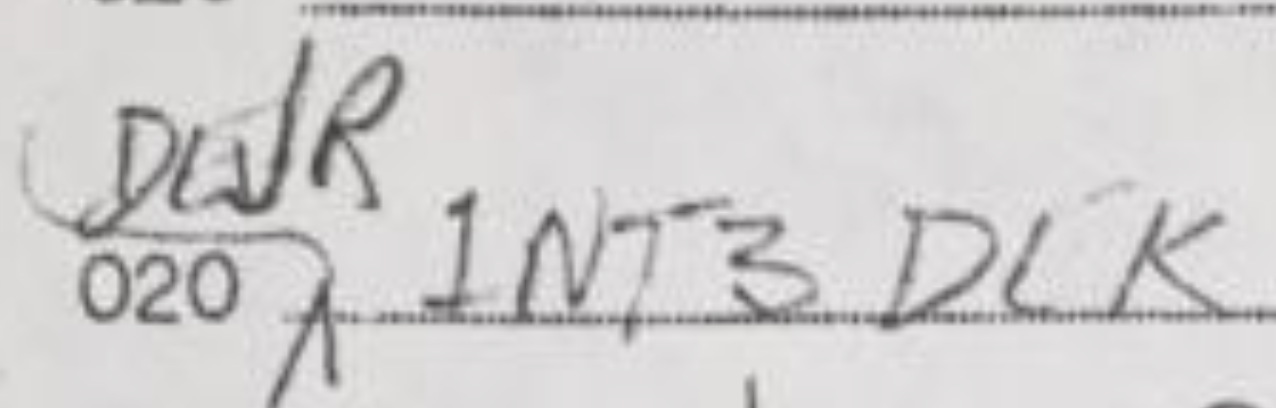 DLVR
020 1NT3 DLK